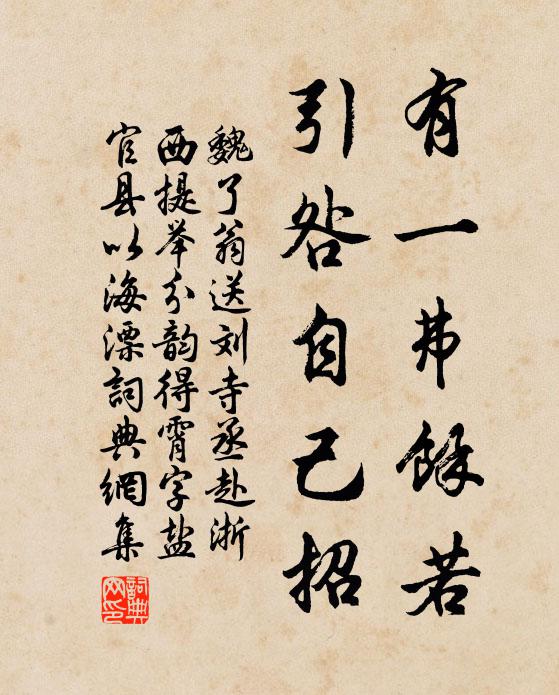 有一弗餘若
引咎自己招
魏了翁送刘寺丞赴浙
西提举分韵得霄字盐
官县以海漂詞典網集
詞典网印